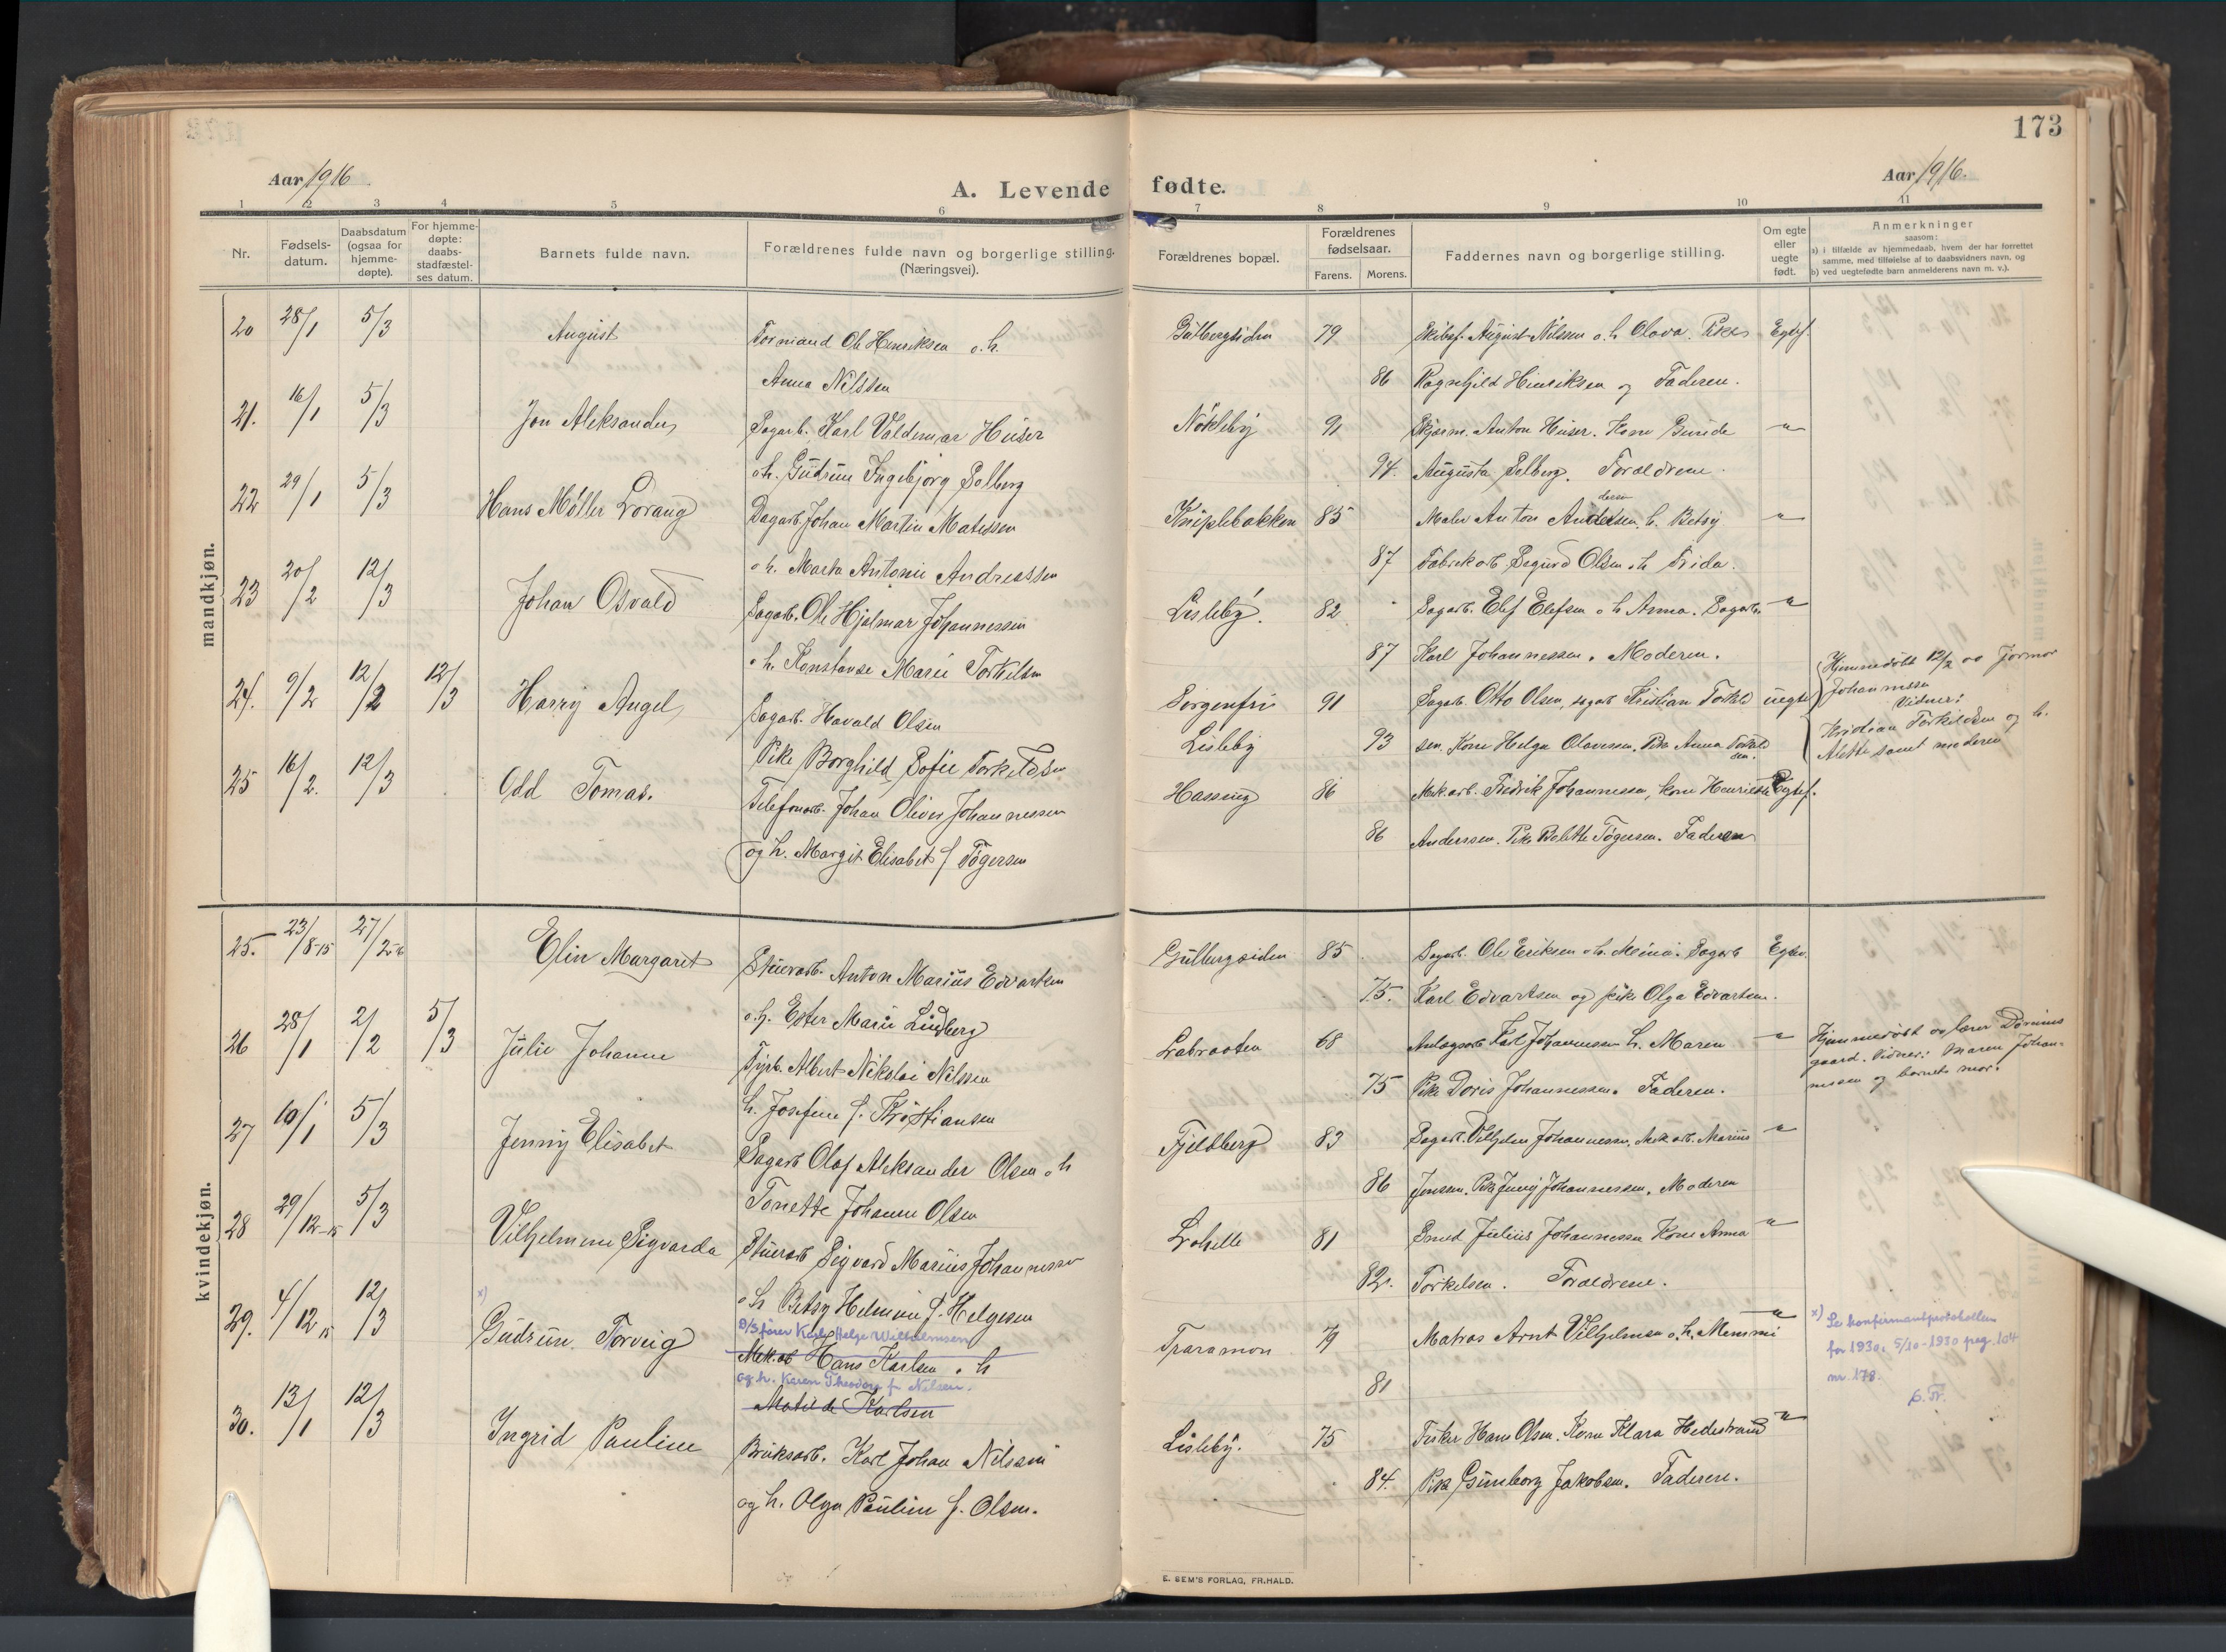 173
Aar 1916
A. Levende
fødte.
Aar 1916.
1 2 3 4 5 6 7 8 9 10 11
Nr.
Fødsels-
datum.
Daabsdatum
(ogsaa for
hjemme-
døpte).
For hjemme-
døpte:
daabs-
stadfæstel-
ses datum.
Barnets fulde navn.
Forældrenes fulde navn og borgerlige stilling.
(Næringsvei).
Forældrenes bopæl.
Forældrenes
fødselsaar.
Farens. Morens.
Faddernes navn og borgerlige stilling.
Om egte
eller
uegte
født.
Anmerkninger
saasom:
a) i tilfælde av hjemmedaab, hvem der har forrettet
samme, med tilføielse af to daabsvidners navn, og
b) ved uegtefødte barn anmelderens navn m. v.).
mandkjøn.
20 28/1 5/3 August Formand Ole Henriksen o. h. 79 Skibsf. August Nilssen o. h. Olava. Pike Egtef.
Anna Nilssen 86 Ragnhild Hinriksen og Faderen.
21. 16/1 5/3 Jon Aleksander Sagarb. Karl Valdemar Huser Nökleby 91 Anton Huser. Kone Gunda "
o h. Gudrun Ingebjorg Solberg 94. Augusta Solberg. Forældrene.
22 29/1 5/3 Hans Møller Lorang Dagarb. Johan Martin Matissen Kniplebakken 85 Maler Anton Andersen h. Betsy "
o h. Marta Antonie Andreassen 87 Fabrikarb Sigurd Olsen o h Frida.
23 20/2 12/3 Johan Osvald Sagarb. Ole Hjalmar Johannessen Lisleby. 82 Sagarb. Elef Elefsen o h Anna. Sagarb. "
o h. Konstanse Marie Torkelsen 87 Karl Johannessen. Moderen.
24. 9/2 12/2 12/3 Harry Angel Sagarb. Havald Olsen Sorgenfri 91 Sagarb. Otto Olsen, sagarb Kristian Torkild uegte
Pike Borghild Sofie Torkildsen Lisleby 93 sen. Kone Helga Olavesen. Pike Anna Torkild
sen.
Hjemmedöbt 12/2 av Jormor
Johannessen
Vidner:
Kristian Torkildsen og h.
Alette samt moderen
25 16/2. 12/3 Odd Tomas. Telefonarb. Johan Oliver Johannessen Hassing 86 Mek. arb. Fredrik Johannessen, kone Henriette Egtef.
og h. Margit Elisabet f Tögersen 86 Anderssen. Pike Bolette Tögersen. Faderen
kvindekjøn.
25. 23/8-15 27/2 Elin Margaret Stuerarb. Anton Marius Edvartsen Gullbergsiden 85 Sagarb. Ole Eriksen o h. Mina. Sagarb
o. h. Ester Marie Lindberg 75. Karl Edvartsen og pike Olga Edvartsen.
26 28/1 2/2 5/3 Julie Johanne Fyrb. Albert Nikolai Nilssen Labraaten 68 Anlægsarb Karl Johannessen h. Maren "
h. Josefine f. Kristiansen 75 Pike Doris Johannessen. Faderen.
Hjemmedöbt av lærer
gaard. Vidner: Maren Johan-
nessen og barnets mor.
27 10/1 5/3 Jenny Elisabet Sagarb Olaf Aleksander Olsen o h Fjeldberg 83 Sagarb. Vilhelm Johannessen. Mek arb. Marius "
Tonette Johanne Olsen 86 Jenssen. Pike Jenny Johannessen. Moderen
28 29/12-15 5/3 Vilhelmine Sigvarda Stuerarb Sigvard Marius Johannessen Lahelle 81 Smed Julius Johannessen Kone Anna "
o h Betsy Helmine f. Helgesen 82. Torkelsen. Forældrene.
29. 4/12 15 12/3 x) Gudrun Torveig D/S fører Karl Helge Wilhelmsen
Mek. arb Hans Karlsen o h Traramon 79 Matros Arnt Vilhelmsen o. h. Memmi "
og h. Karen Theodora f. Nilsen.
Matilde Karlsen 81
x) Se konfirmantprotokollen
for 1930: 5/10-1930 pag. 104
nr. 178.
30. 13/1 12/3 Ingrid Pauline Bruksarb. Karl Johan Nilssen Lisleby. 75 Fisker Hans Olsen. Kone Klara Hedestrand "
og h. Olga Pauline f. Olsen. 84. Pike Gunborg Jakobsen. Faderen.
E. SEM'S FORLAG, FR.HALD.